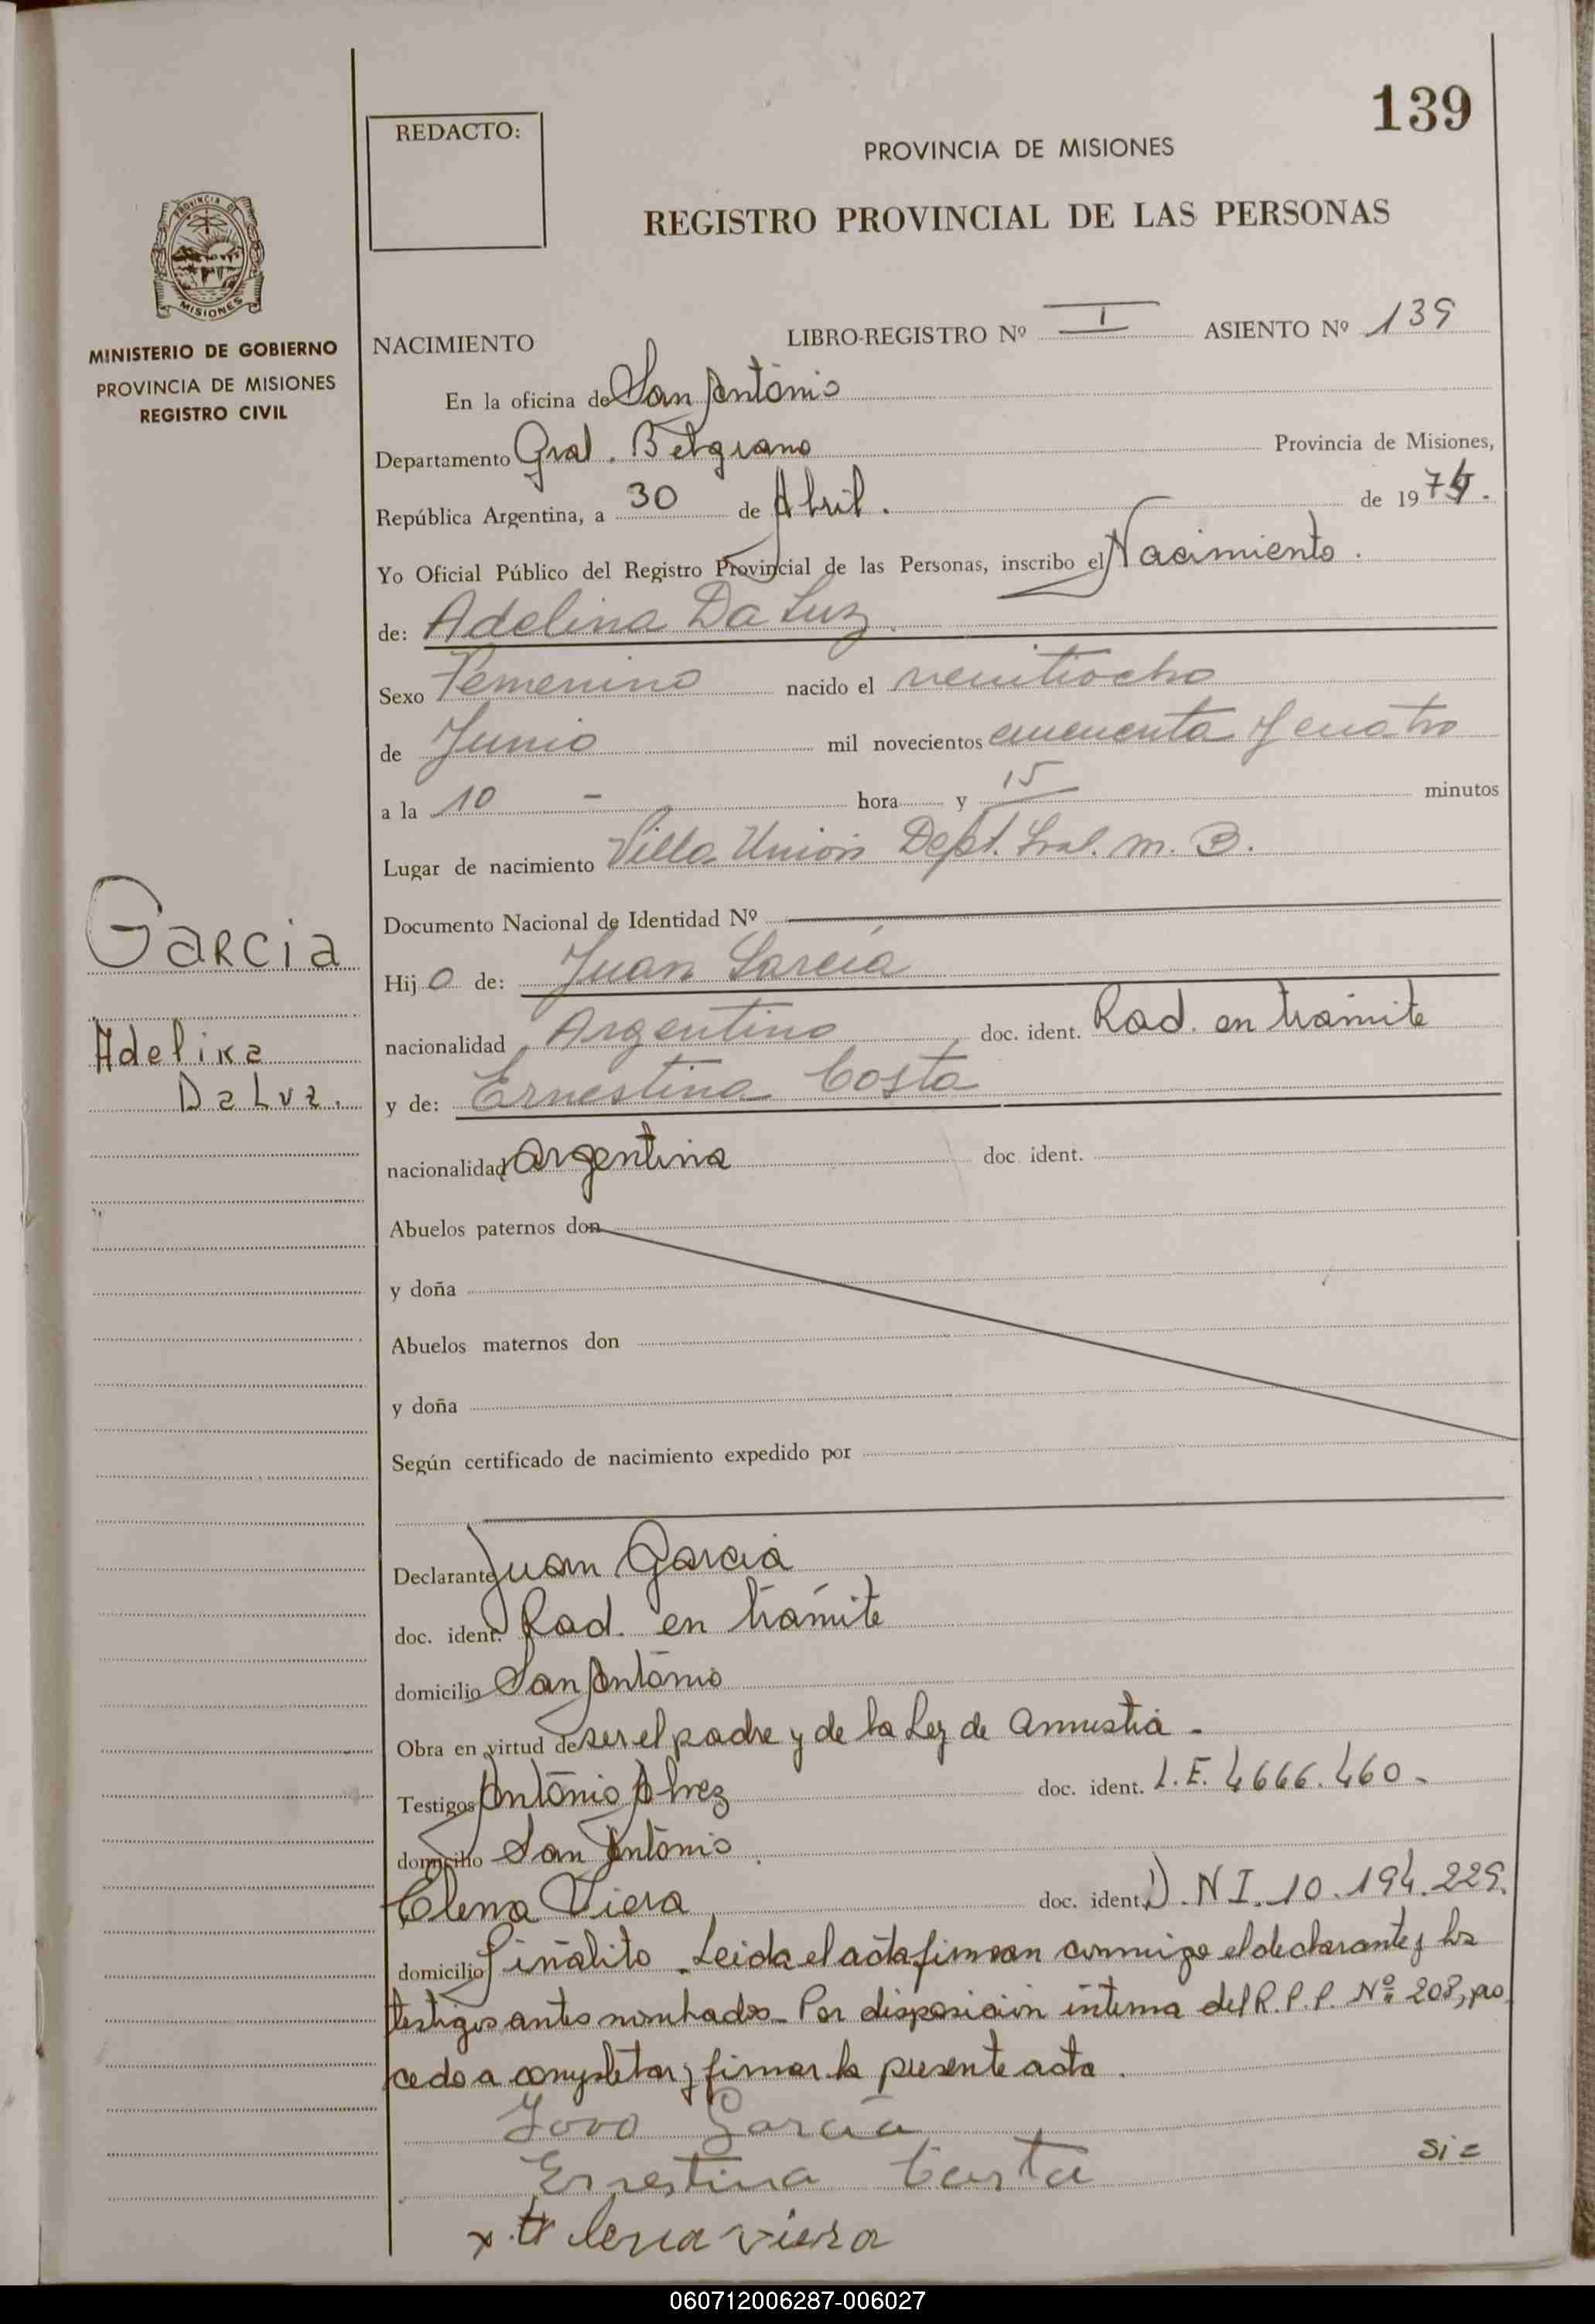 139
REDACTO:
PROVINCIA DE MISIONES
REGISTRO PROVINCIAL DE LAS PERSONAS
PROVINCIA DE
MISIONES
MINISTERIO DE GOBIERNO
PROVINCIA DE MISIONES
REGISTRO CIVIL
NACIMIENTO LIBRO-REGISTRO Nº I ASIENTO Nº 139
En la oficina de San Antonio
Departamento Gral. Belgrano Provincia de Misiones,
República Argentina, a 30 de Abril. de 1974.
Yo Oficial Público del Registro Provincial de las Personas, inscribo el Nacimiento.
de: Adelina Da Luz.
Sexo Femenino nacido el veintiocho
de Junio mil novecientos cincuenta y cuatro
a la 10 - hora y 15 minutos
Lugar de nacimiento Villa Unión Dept. Gral. M. B.
Documento Nacional de Identidad Nº
Garcia
Hij o de: Juan García
nacionalidad Argentino doc. ident. Rad. en trámite
Adelina
Da Luz.
y de: Ernestina Costa
nacionalidad Argentina doc. ident.
Abuelos paternos don
y doña
Abuelos maternos don
y doña
Según certificado de nacimiento expedido por
Declarante Juan Garcia
doc. ident. Rad. en trámite
domicilio San Antonio
Obra en virtud de ser el padre y de la Ley de Amnistia -
Testigos Antonio Alvez doc. ident. L.E. 4666.460.-
domicilio San Antonio.
Elena Viera doc. ident. D.N I. 10.194.229.
domicilio Piñalito. Leida el acta firman conmigo el declarante y los
testigos antes nombrados - Por disposición interna del R.P.P. Nº 208, pro
cedo a completar y firmar la presente acta.
Jovo Garcia
Ernestina Costa
si =
x Elena viera
060712006287-006027